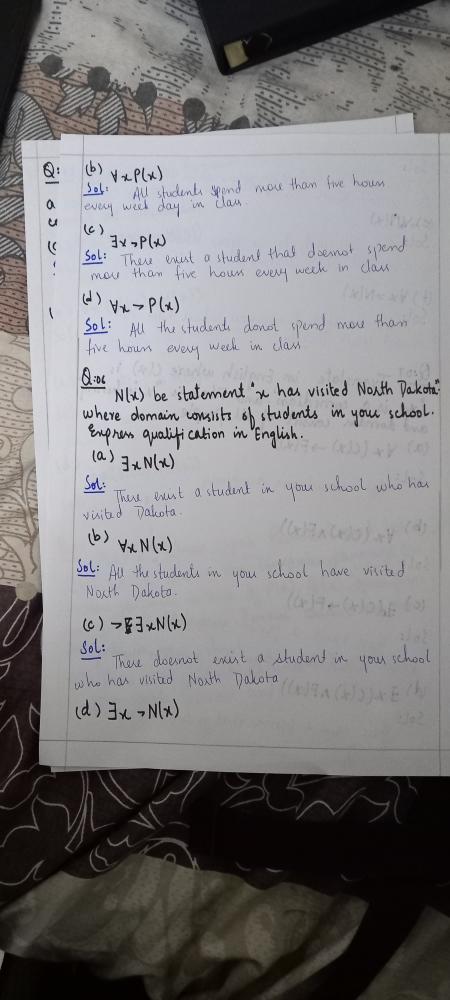 Q:
a
(b) ∀x P(x)
Sol: All students spend more than five hours
every week day in class.
(c) ∃x ¬P(x)
Sol: There exist a student that doesnot spend
more than five hours every week in class
(d) ∀x ¬P(x)
Sol: All the students donot spend more than
five hours every week in class
Q:06
N(x) be statement "x has visited North Dakota"
where domain consists of students in your school.
Express qualification in English.
(a) ∃x N(x)
Sol:
There exist a student in your school who has
visited Dakota.
(b) ∀x N(x)
Sol: All the students in your school have visited
North Dakota.
(c) ¬∃x N(x)
Sol:
There doesnot exist a student in your school
who has visited North Dakota
(d) ∃x ¬N(x)